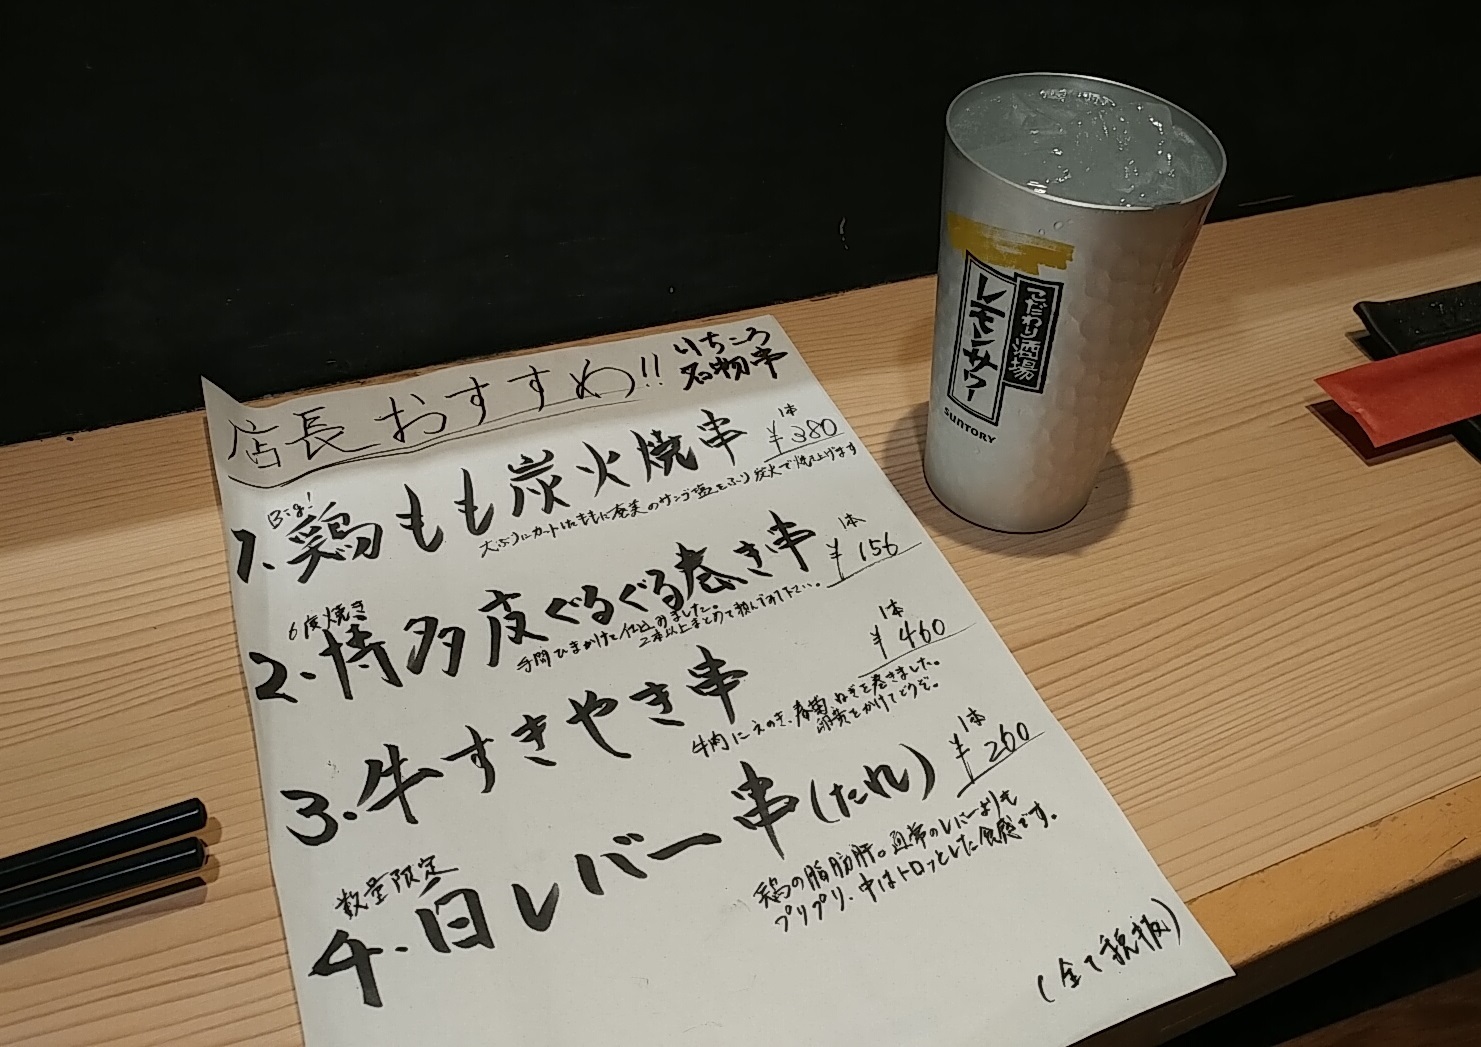 店長おすすめ!!
いちころ
名物串
Big!
1.鶏もも炭火焼串
1本
¥380
大ぶりにカットしたももに奄美のサンゴ塩をふり炭火で焼上げます
6度焼き
2.博多皮ぐるぐる巻き串
1本
¥156
手間ひまかけて仕込みました。
2本以上まとめて頼んで下さい。
3.牛すきやき串
1本
¥460
牛肉にえのき、春菊、ねぎを巻きました。
卵黄をかけてどうぞ。
数量限定
4.白レバー串(たれ)
1本
¥260
鶏の脂肪肝。通常のレバーよりも
プリプリ、中はトロッとした食感です。
(全て税抜)
こだわり酒場
レモンサワー
SUNTORY